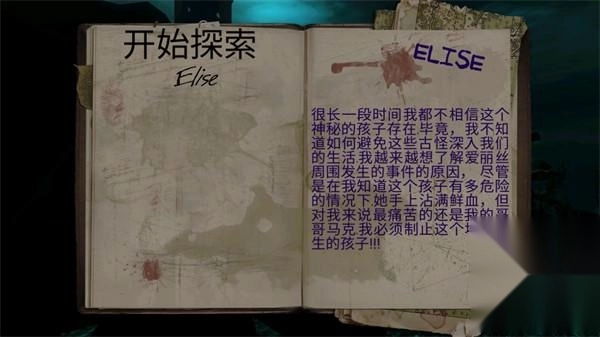 开始探索
Elise
ELISE
很长一段时间我都不相信这个
神秘的孩子存在.毕竟，我不知
道如何避免这些古怪深入我们
的生活.我越来越想了解爱丽丝
周围发生的事件的原因，尽管
是在我知道这个孩子有多危险
的情况下.她手上沾满鲜血，但
对我来说最痛苦的还是我的哥
哥马克.我必须制止这个
生的孩子!!!